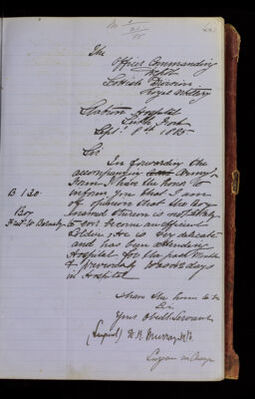 The
Officer Commanding
Depot
Scottish Division
Royal Artillery
Station Hospital
Leith Fort
Sept. 8th 1885
Sir
In forwarding the
accompanying Army
Form I have the honor to
inform you that I am
of opinion that the Boy
named thereon is not likely
to become an efficient
Soldier. He is very delicate
and has been attending
Hospital for the past month
& previously to so days
in Hospital
B 130
Boy
I have the honor to be
Sir
Your Obedt Servant
(Signed) Murray
Surgeon in Charge